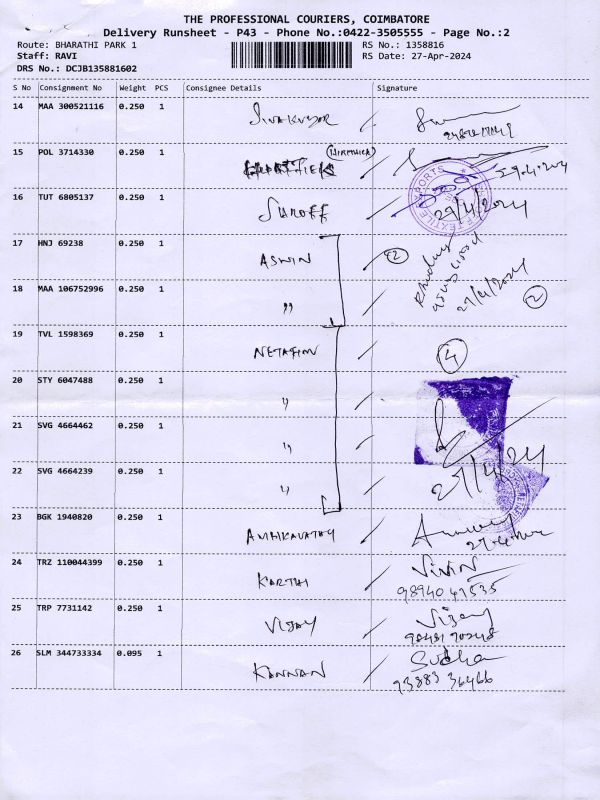 THE PROFESSIONAL COURIERS, COIMBATORE
Delivery Runsheet - P43 - Phone No.:0422-3505555 - Page No.:2
Route: BHARATHI PARK 1 RS No.: 1358816
Staff: RAVI RS Date: 27-Apr-2024
DRS No.: DCJB135881602
S No Consignment No Weight PCS Consignee Details Signature
14 MAA 300521116 0.250 1 SIVAKUMAR
15 POL 3714330 0.250 1
16 TUT 6805137 0.250 1 SUROFF 27/4/2024
17 HNJ 69238 0.250 1 ASWIN 2
18 MAA 106752996 0.250 1 " 27/4/2024 2
19 TVL 1598369 0.250 1 NETAFIM 4
20 STY 6047488 0.250 1 "
21 SVG 4664462 0.250 1 "
22 SVG 4664239 0.250 1 " 27/4/24
23 BGK 1940820 0.250 1
24 TRZ 110044399 0.250 1 KARTHI Vivin
98940 47535
25 TRP 7731142 0.250 1 VIJAY Vijay
26 SLM 344733334 0.095 1 KANNAN Sudha
93883 36466